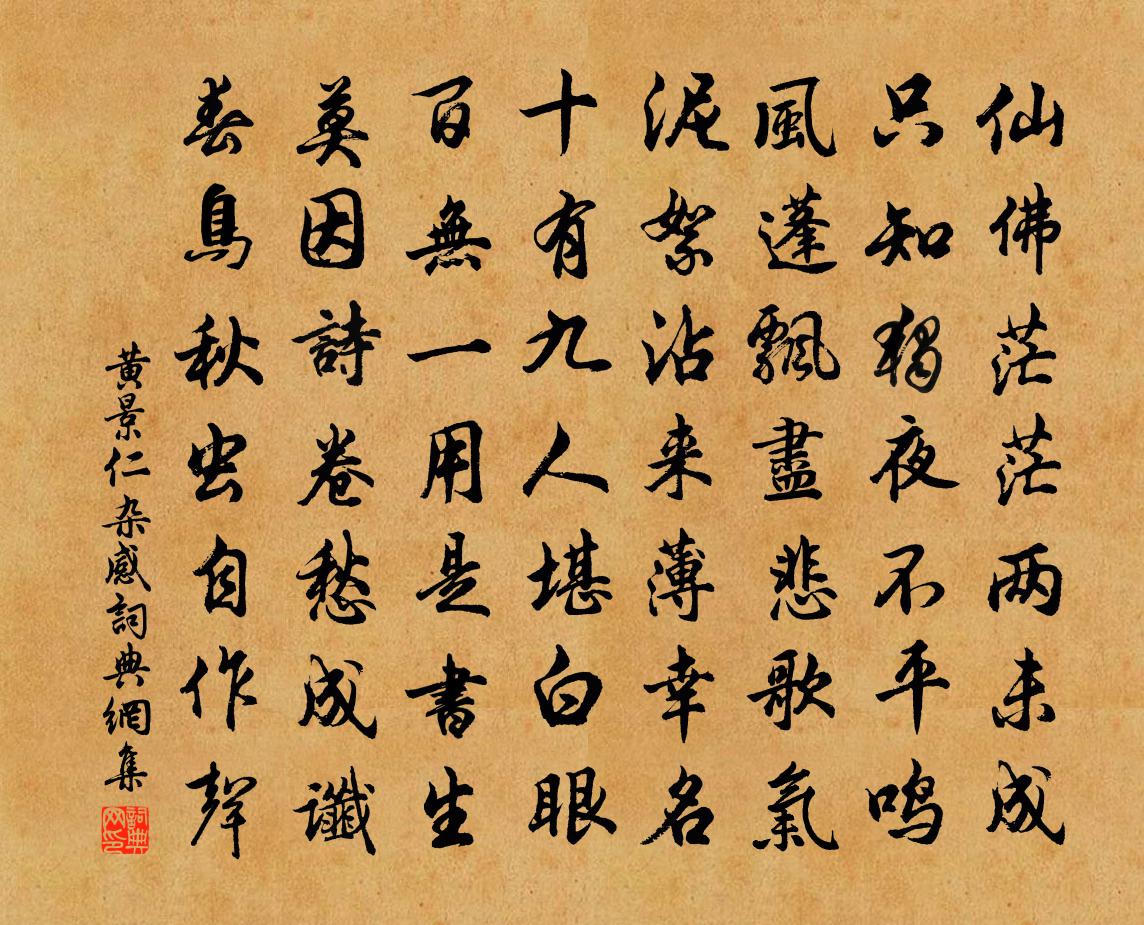 仙佛茫茫两未成
只知獨夜不平鸣
風蓬飄盡悲歌氣
泥絮沾来薄幸名
十有九人堪白眼
百無一用是書生
莫因詩卷愁成讖
春鳥秋虫自作聲
黄景仁杂感詞典網集
詞典网印